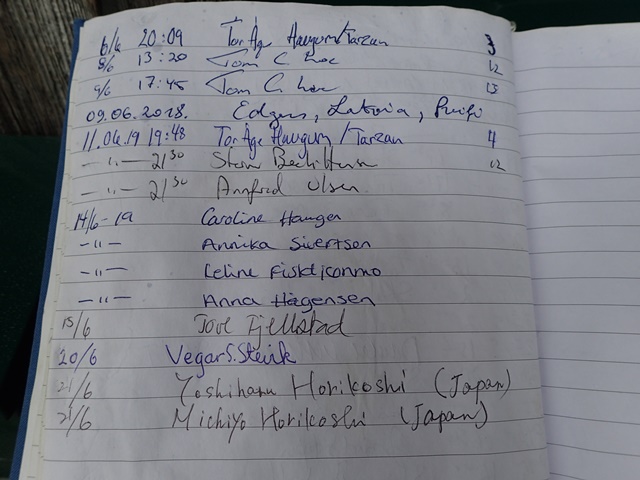 6/6 20:09 Tor Åge Haugum/Tarzan 3
8/6 13:20 Tom C 12
9/6 17:45 Tom C 13
09.06.2018. Edgars, Latvia,
11.06.19 19:48 Tor Åge Haugum/Tarzan 4
—"— 21 30 12
—"— 21 30 Annfrid Olsen
14/6-19 Caroline Haugen
—"— Annika Sivertsen
—"— Celine
—"— Anna Hägensen
15/6 Tove Fjellstad
20/6 Vegar S. Stevik
/6 Yoshiharu Horikoshi (Japan)
/6 Michiyo Horikoshi (Japan)